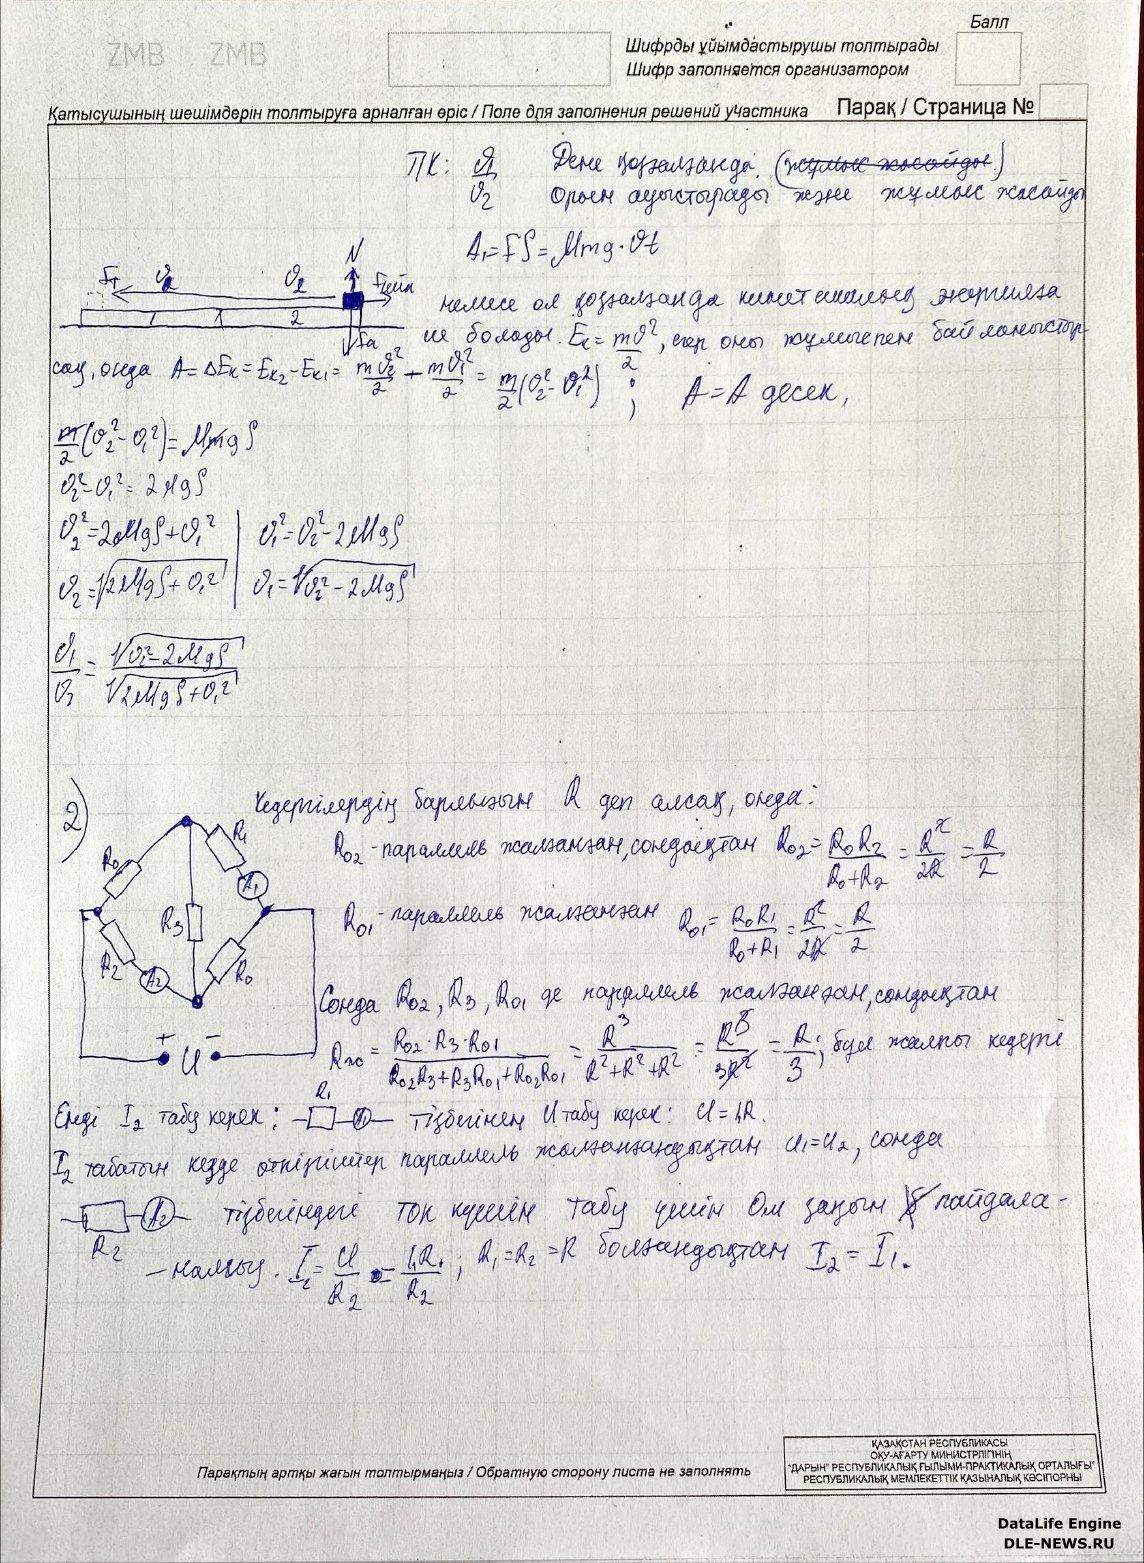 ZMB ZMB
Балл
Шифрды ұйымдастырушы толтырады
Шифр заполняется организатором
Қатысушының шешімдерін толтыруға арналған өріс / Поле для заполнения решений участника Парақ / Страница №
ПК: υ₁/υ₂ Дене қозғалғанда (жұмыс жасайды)
орын ауыстырады және жұмыс жасайды
A₁=FS=Mmg·υt
N
Fт υ₂ υ₂
1 1 2
немесе ол қозғалғанда кинетикалық энергияға
ие болады. Eк=mυ²/2, егер оны жұмыспен байланыстыр-
сақ, онда A=ΔEк=Eк₂-Eк₁= mυ₂²/2 - mυ₁²/2 = m/2(υ₂²-υ₁²) ; A=A десек,
m/2(υ₂²-υ₁²)=MmgS
υ₂²-υ₁²= 2MgS
υ₂²=2MgS+υ₁² | υ₁²=υ₂²-2MgS
υ₂=√(2MgS+υ₁²) | υ₁=√(υ₂²-2MgS)
υ₁/υ₂ = √(υ₂²-2MgS)/√(2MgS+υ₁²)
2) Кедергілердің барлығын R деп алсақ, онда:
R₀ R₁ A₁ R₃ R₂ A₂ R₀
+ U -
R₀₂-параллель жалғанған, сондықтан R₀₂= R₀R₂/(R₀+R₂) = R²/2R = R/2
R₀₁-параллель жалғанған R₀₁= R₀R₁/(R₀+R₁) = R²/2R = R/2
Сонда R₀₂, R₃, R₀₁ де параллель жалғанған, сондықтан
Rж = R₀₂·R₃·R₀₁/(R₀₂R₃+R₃R₀₁+R₀₂R₀₁) = R³/(R²+R²+R²) = R³/3R² = R/3; бұл жалпы кедергі
Енді I₂ табу керек: R₁ A₁ тізбегінен U табу керек: U=I₁R.
I₂ табатын кезде өткізгіштер параллель жалғанғандықтан U₁=U₂, сонда
R₂ A₂ тізбегіндегі ток күшін табу үшін Ом заңын пайдала-
намыз. I₂= U/R₂ = I₁R₁/R₂ ; R₁=R₂=R болғандықтан I₂=I₁.
ҚАЗАҚСТАН РЕСПУБЛИКАСЫ
ОҚУ-АҒАРТУ МИНИСТРЛІГІНІҢ
"ДАРЫН" РЕСПУБЛИКАЛЫҚ ҒЫЛЫМИ-ПРАКТИКАЛЫҚ ОРТАЛЫҒЫ"
РЕСПУБЛИКАЛЫҚ МЕМЛЕКЕТТІК ҚАЗЫНАЛЫҚ КӘСІПОРНЫ
Парақтың артқы жағын толтырмаңыз / Обратную сторону листа не заполнять
DataLife Engine
DLE-NEWS.RU